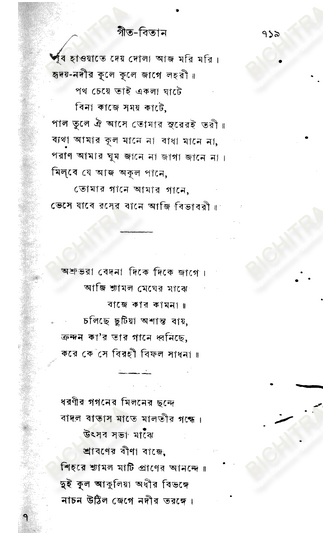 গীত-বিতান ৭১৯
পূব হাওয়াতে দেয় দোলা আজ মরি মরি।
হৃদয়-নদীর কূলে কূলে জাগে লহরী॥
পথ চেয়ে তাই একলা ঘাটে
বিনা কাজে সময় কাটে,
পাল তুলে ঐ আসে তোমার সুরেরই তরী॥
ব্যথা আমার কূল মানে না বাধা মানে না,
পরাণ আমার ঘুম জানে না জাগা জানে না।
মিল্‌বে যে আজ অকূল পানে,
তোমার গানে আমার গানে,
ভেসে যাবে রসের বানে আজি বিভাবরী॥
অশ্রুভরা বেদনা দিকে দিকে জাগে।
আজি শ্যামল মেঘের মাঝে
বাজে কার কামনা॥
চলিছে ছুটিয়া অশান্ত বায়,
ক্রন্দন কা'র তার গানে ধ্বনিছে,
করে কে সে বিরহী বিফল সাধনা॥
ধরণীর গগনের মিলনের ছন্দে
বাদল বাতাস মাতে মালতীর গন্ধে।
উৎসব সভা মাঝে
শ্রাবণের বীণা বাজে,
শিহরে শ্যামল মাটি প্রাণের আনন্দে॥
দুই কূল আকুলিয়া অধীর বিভঙ্গে
নাচন উঠিল জেগে নদীর তরঙ্গে।
৭
BICHITRA
BICHITRA
BICHITRA
BICHITRA
BICHITRA
BICHITRA